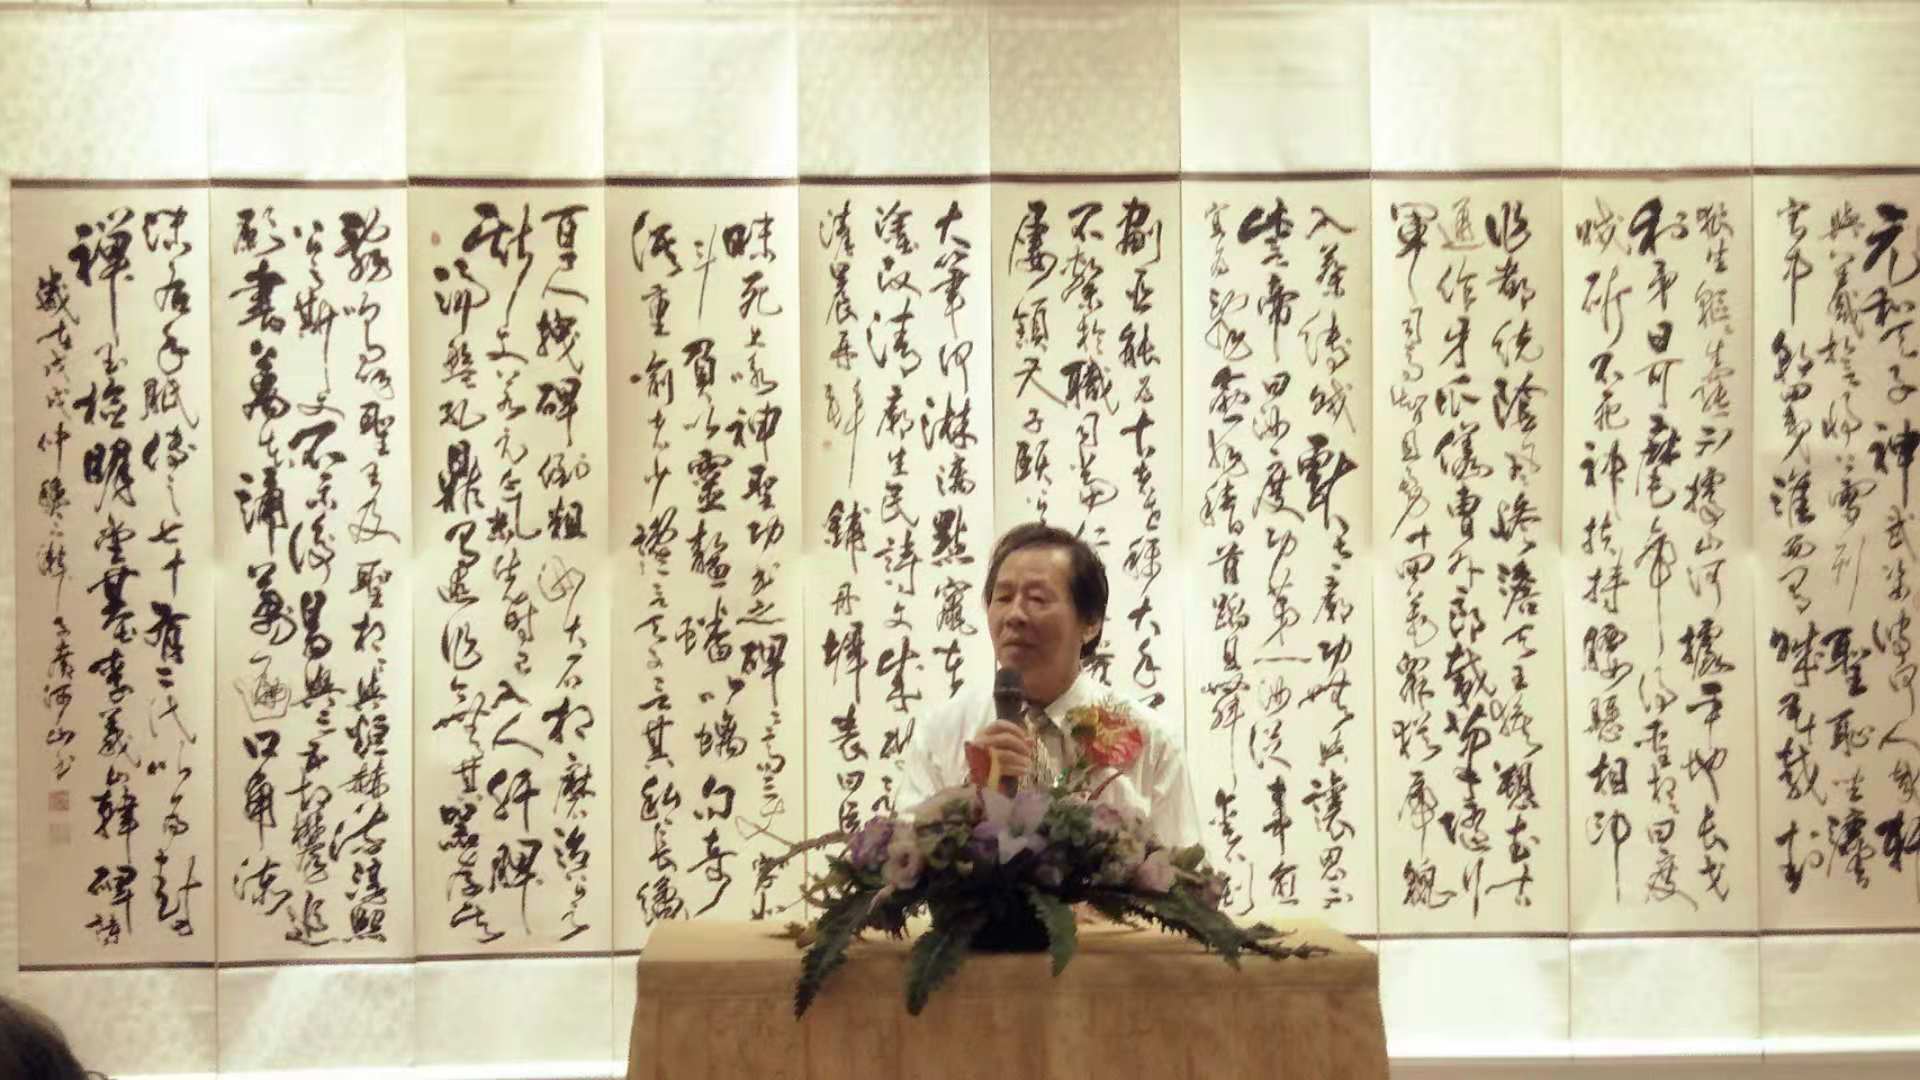 元和天子神武姿彼何人哉軒
與羲誓將上雪列聖恥坐法
宮中朝四夷淮西有賊五十載封
狼生貙貙生羆不據山河據平地長戈
利矛日可麾帝得聖相相曰度
賊斫不死神扶持腰懸相印
作都統陰風慘澹天王旗愬武古
通作牙爪儀曹外郎載筆隨行
軍司馬智且勇十四萬眾猶虎貔
入蔡縛賊獻太廟功無與讓恩不
訾帝曰汝度功第一汝從事愈
宜為辭愈拜稽首蹈且舞金石刻
劃臣能為古者世稱大手
不繫於職司當仁
屢頷天子頤公
大筆何淋漓點竄堯
塗改清廟生民詩文成破
清晨再拜鋪丹墀表曰臣
昧死上詠神聖功書之碑碑高三丈字如
斗負以靈鼇蟠以螭句奇
語重喻者少讒之天子言其私長繩
百尺拽碑倒粗砂大石相磨治公之
斯文若元氣先時已入人肝脾
湯盤孔鼎有述作今無其器存其辭
嗚呼聖王及聖相相與烜赫流淳熙
公之斯文不示後曷與三五相攀追
願書萬本誦萬遍口角流
沫右手胝傳之七十有二代以為封
禪玉檢明堂基李義山韓碑詩
歲在戊戌仲 山書